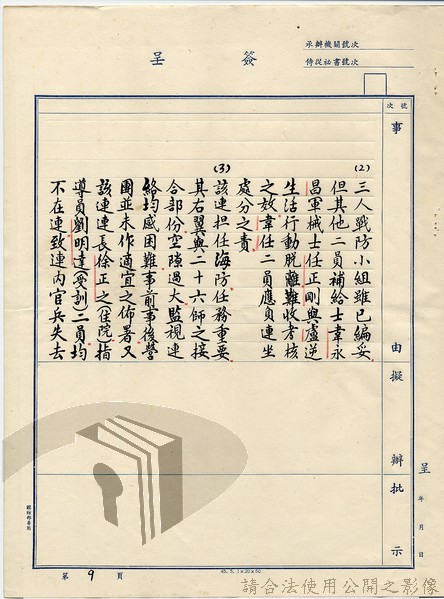 簽呈
承辦機關號次
侍從祕書號次
號次
事由擬辦批示
呈 年 月 日
(2)
三人戰防小組雖已編妥
但其他二員補給士韋永
昌軍械士任正剛與盧逆
生活行動脫離難收考核
之效韋任二員應負連坐
處分之責
(3)
該連担任海防任務重要
其右翼與二十六師之接
合部份空隙過大監視連
絡均感困難事前事後營
團並未作適宜之佈署又
該連連長徐正之(住院)指
導員劉明達(受訓)二員均
不在連致連內官兵失去
第9頁
請合法使用公開之影像